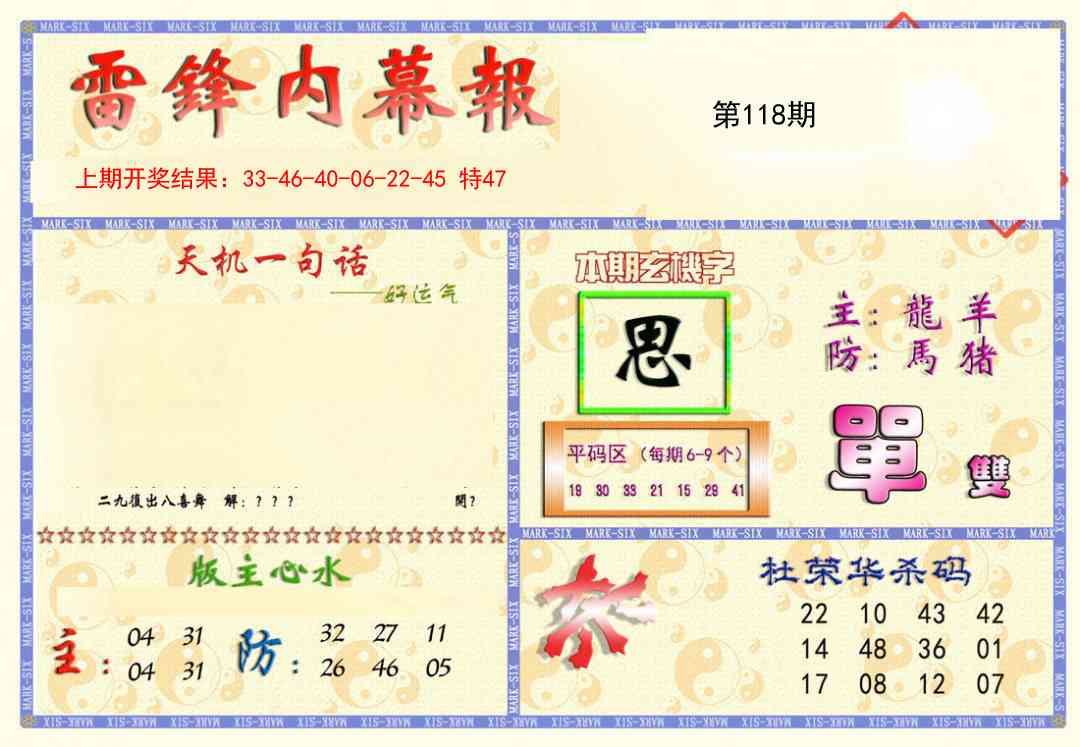 MARK-SIX MARK-SIX MARK-SIX MARK-SIX MARK-SIX MARK-SIX MARK-SIX MARK-SIX MARK-SIX MARK-SIX MARK-SIX MARK-SIX MARK-SIX MARK-SIX MARK-SIX MARK-SIX
雷鋒内幕報
第118期
上期开奖结果：33-46-40-06-22-45 特47
天机一句话
——好运气
二九復出八喜舞 解：？？？ 開？
本期玄機字
思
平码区（每期6-9个）
19 30 33 21 15 29 41
主：龍 羊
防：馬 猪
單 雙
版主心水
主：
04 31
04 31
防：
32 27 11
26 46 05
杜荣华杀码
22 10 43 42
14 48 36 01
17 08 12 07